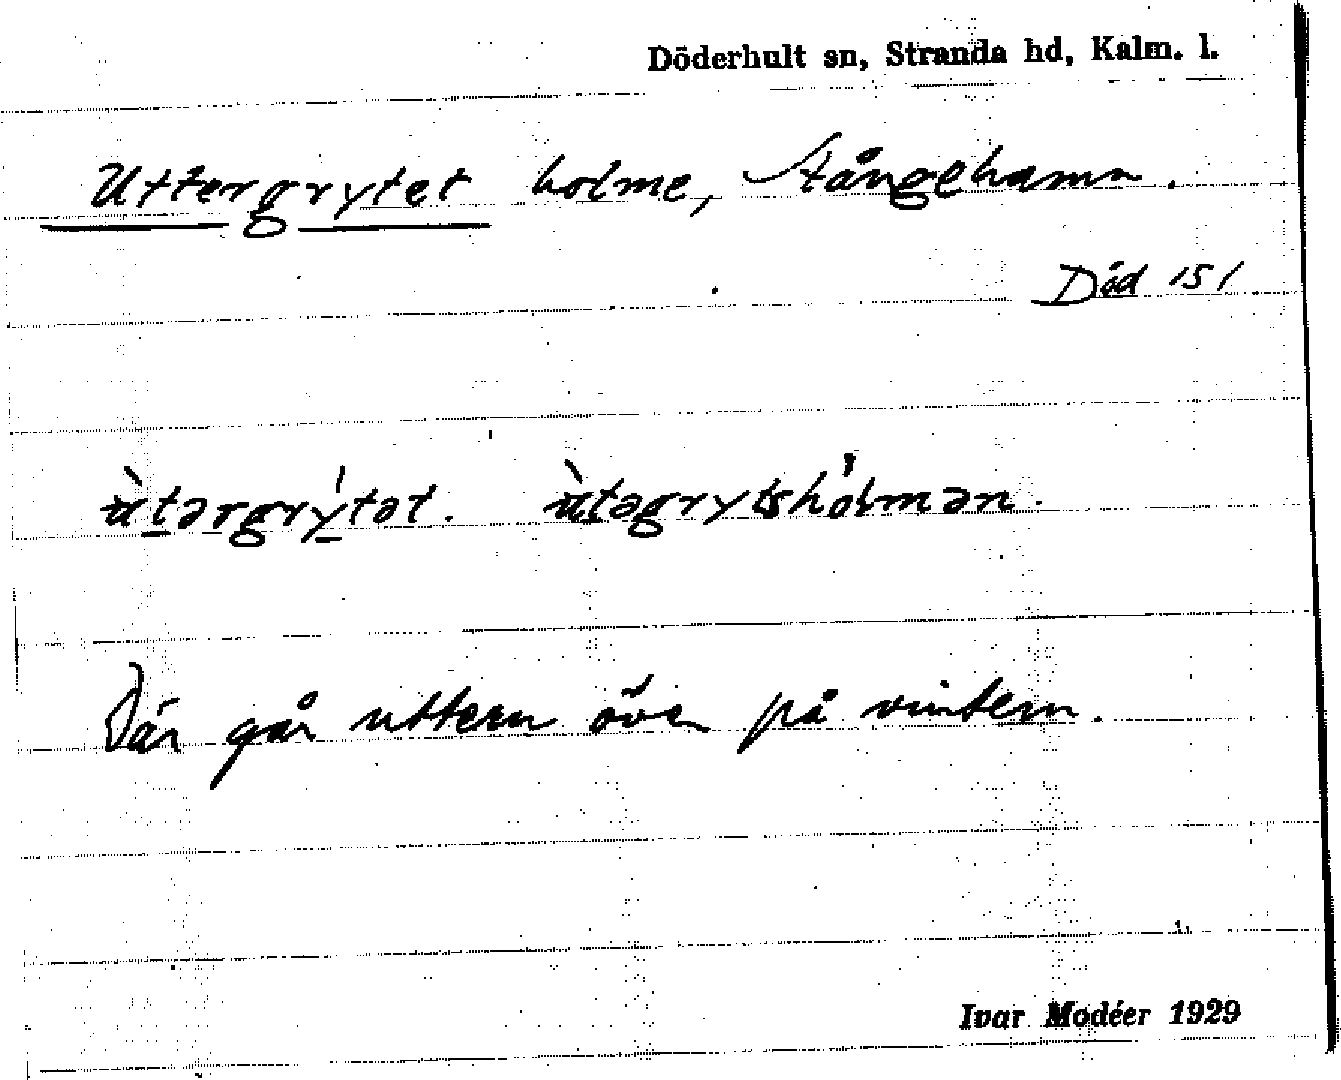 Döderhult sn, Stranda hd, Kalm. l.
Uttergrytet holme, Stångehamn.
Död 151
ùtərgrýtət. ùtəgrytshólmən.
Där går uttern över på vintern.
Ivar Modéer 1929